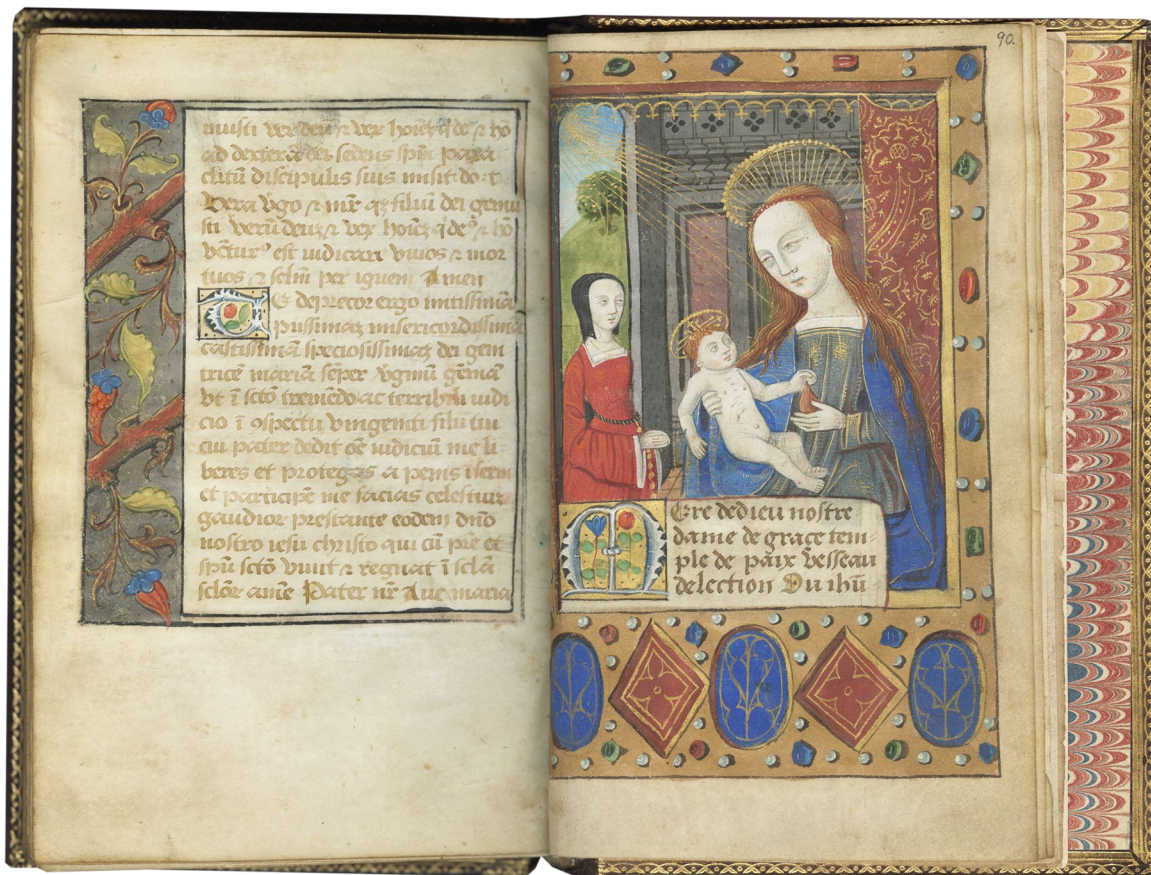 genuisti verū deū ⁊ verū
ad dexterā dei sedens spm̄ para
clitū discipulis suis misit
Vera vgo ⁊ mr̄ filiū dei genui
sti verū deū ⁊
vēturꝰ est iudicare viuos ⁊ mor
tuos ⁊ sclm̄ per ignem Amen
Te deprecor ergo mitissimā
piissimaꝫ misericordissimā
castissimā speciosissimaꝫ dei geni
tricē mariā sēper vginē
vt ī scto tremēdo ac terribili iudi
cio ī ꝯspectu vnigeniti filii tui
cui pater dedit oē iudiciū me li
beres et protegas a penis īferni
et participē me facias celestiū
gaudioꝝ prestante eodem dn̄o
nostro iesu christo qui cū pr̄e et
spū sctō viuit ⁊ regnat ī scl̄a
scl̄oꝝ amē Pater nr̄ Aue maria
90.
Mere de dieu nostre
dame de grace tem-
ple de paix vesseau
delection Du ihū